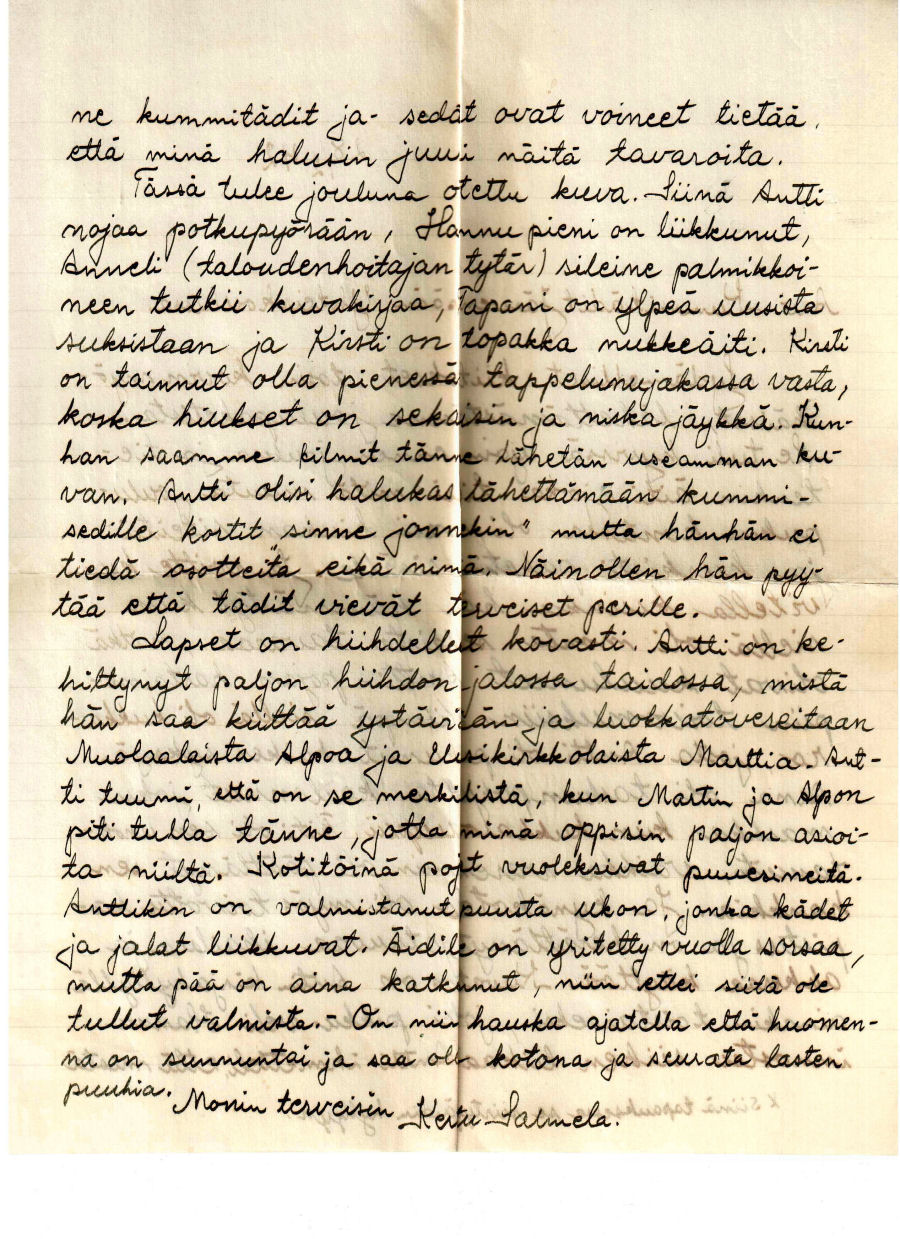 ne kummitädit ja- sedät ovat voineet tietää,
että minä halusin juuri näitä tavaroita.
Tässä tulee jouluna otettu kuva. Siinä Antti
nojaa potkupyörään, Hannu pieni on liikkunut,
Anneli (taloudenhoitajan tytär) sileine palmikkoi-
neen tutkii kuvakirjaa, Tapani on ylpeä uusista
suksistaan ja Kirsti on topakka nukkeäiti. Kirsti
on tainnut olla pienessä tappelunujakassa vasta,
koska hiukset on sekaisin ja niska jäykkä. Kun-
han saamme filmit tänne lähetän useamman ku-
van. Antti olisi halukas lähettämään kummi-
sedille kortit "sinne jonnekin" mutta hänhän ei
tiedä osotteita eikä nimiä. Näinollen hän pyy-
tää että tädit vievät terveiset perille.
Lapset on hiihdelleet kovasti. Antti on ke-
hittynyt paljon hiihdon jalossa taidossa, mistä
hän saa kiittää ystäviään ja luokkatovereitaan
Muolaalaista Alpoa ja Uusikirkkolaista Marttia. Ant-
ti tuumi, että on se merkilistä, kun Martin ja Alpon
piti tulla tänne, jotta minä oppisin paljon asioi-
ta niiltä. Kotitöinä pojat vuoleksivat puuesineitä.
Anttikin on valmistanut puusta ukon, jonka kädet
ja jalat liikkuvat. Äidille on yritetty vuolla sorsaa,
mutta pää on aina katkennut, niin ettei siitä ole
tullut valmista. - On niin hauska ajatella että huomen-
na on sunnuntai ja saa olla kotona ja seurata lasten
puuhia.
Monin terveisin Kerttu Salmela.